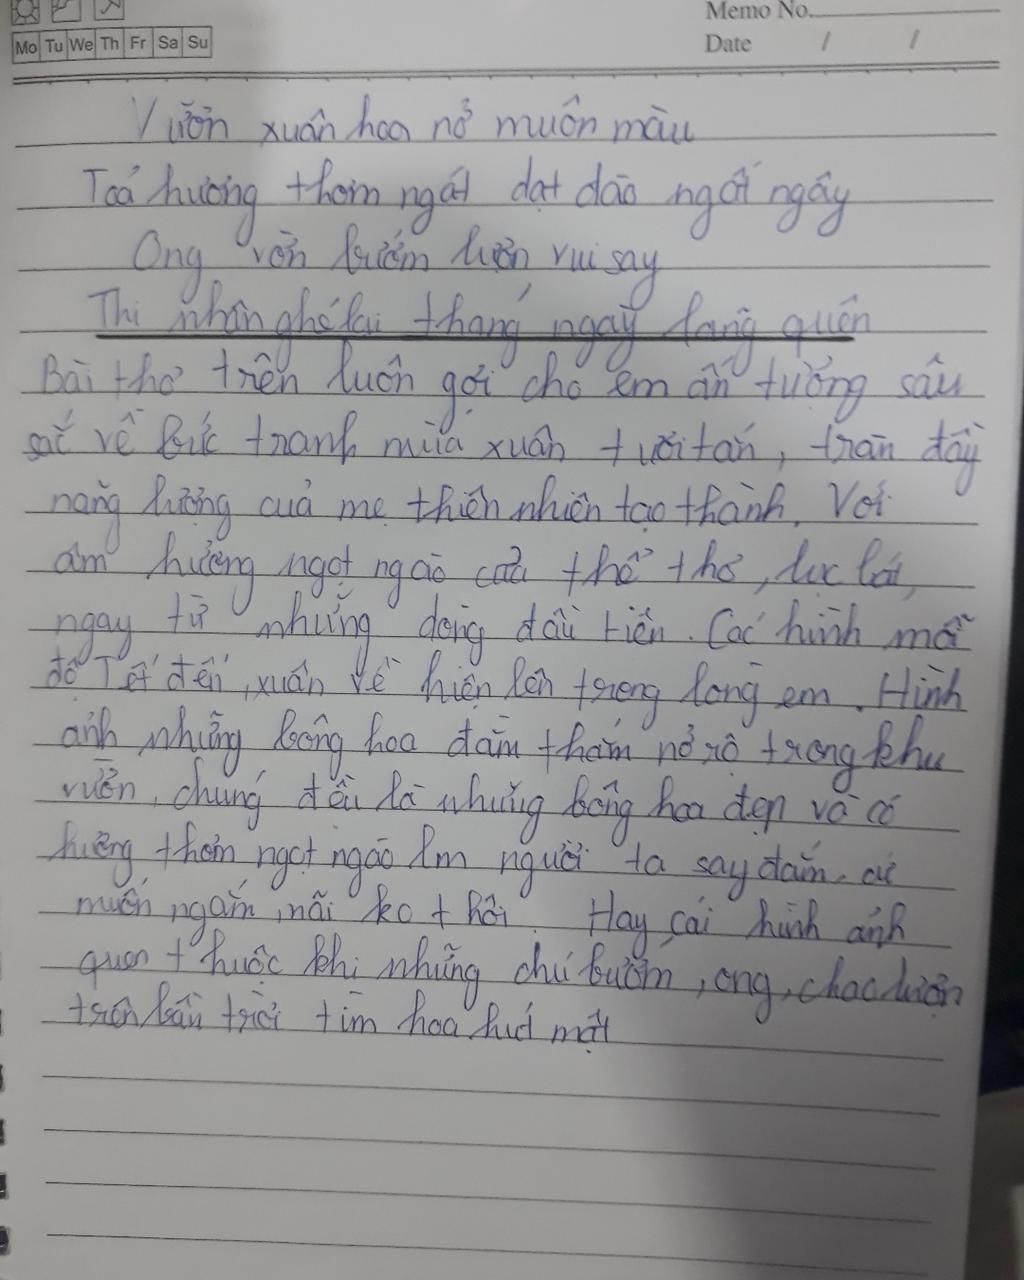 Memo No.
Mo Tu We Th Fr Sa Su
Date / /
Vườn xuân hoa nở muôn màu
Toả hương thơm ngát dạt dào ngất ngây
Ong vờn bướm lượn vui say
Thi nhân ghé lại tháng ngày lãng quên
Bài thơ trên luôn gợi cho em ấn tượng sâu
sắc về bức tranh mùa xuân tươi tắn, tràn đầy
năng lượng của mẹ thiên nhiên tạo thành. Với
âm hưởng ngọt ngào của thể thơ, lục bát,
ngay từ những dòng đầu tiên. Các hình mỗi
độ Tết đến, xuân về hiện lên trong lòng em. Hình
ảnh những bông hoa đằm thắm nở rộ trong khu
vườn, chúng đều là những bông hoa đẹp và có
hương thơm ngọt ngào lm người ta say đắm, cứ
muốn ngắm, mãi ko thôi. Hay cái hình ảnh
quen thuộc khi những chú bướm, ong, chao lượn
trên bầu trời tìm hoa hút mật